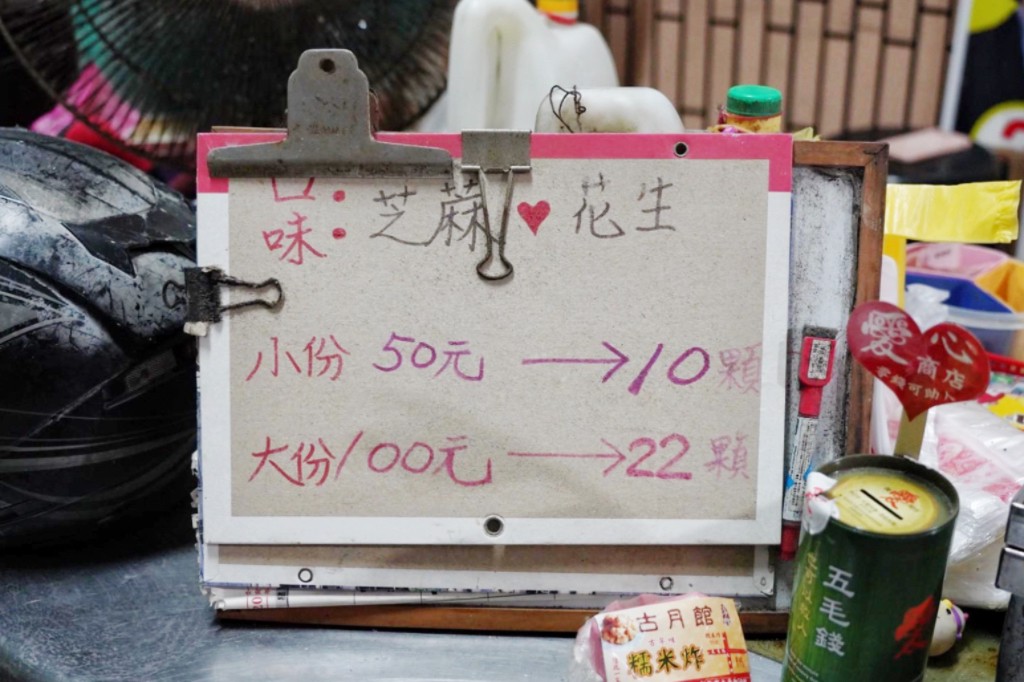 口味：芝蔴♥花生
小份 50元 → 10顆
大份 100元 → 22顆
愛心
商店
五毛錢
古月館
糯米炸